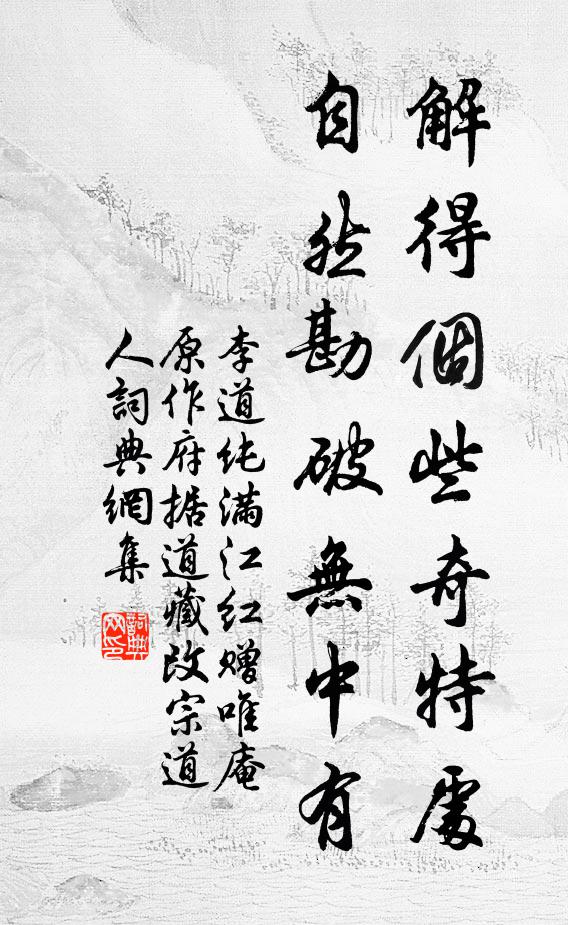 解得個些奇特處
自然勘破無中有
李道純滿江紅贈唯庵
原作府據道藏改宗道
人詞典網集
詞典網印